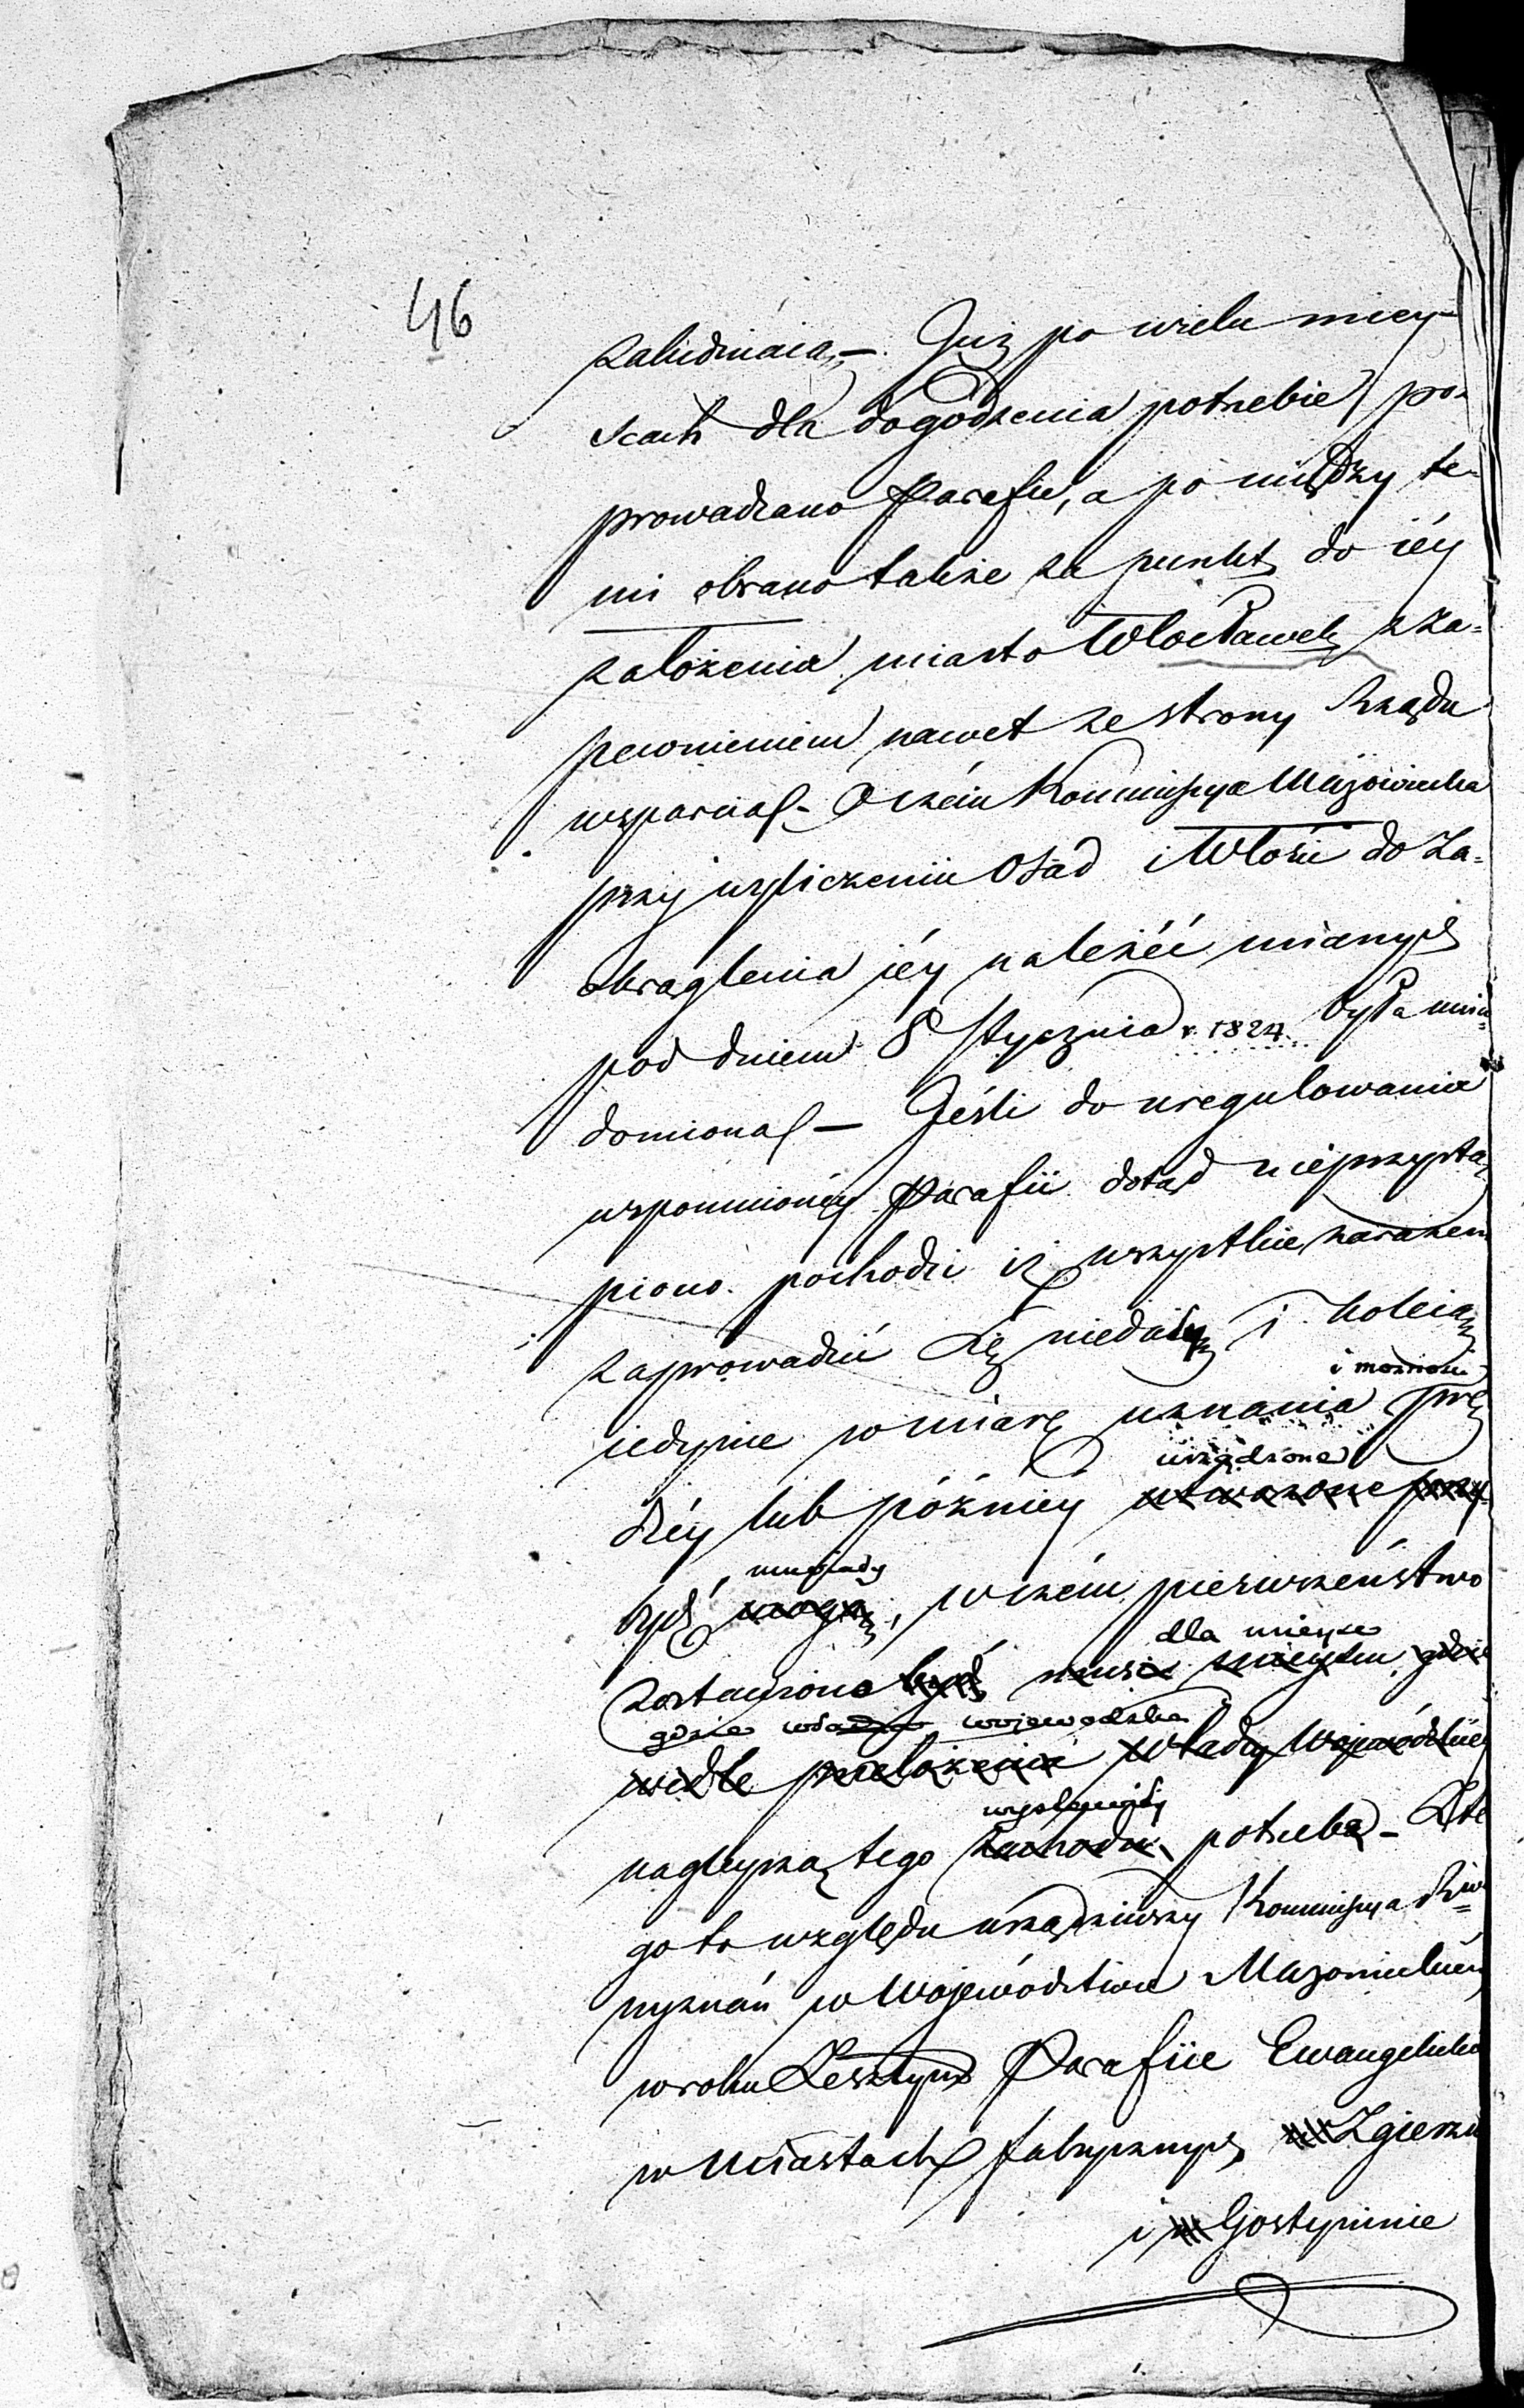 46
zaludniaią. — Już po wielu miey-
scach dla dogodzenia potrzebie po
prowadzano Parafie, a po między te-
mi obrano także za punkt do iéy
założenia miasto Włocławek z za=
pewnieniem nawet ze strony Rządu
wsparcia. — O czém Kommissya Mazowiecka
przy wyliczeniu Osad i Włości do Za=
okrąglenia iéy należéć mianych
pod dniem 8 Stycznia r. 1824 była uwia-
domiona. — Jeśli do uregulowania
wspomnionéy Parafii dotąd nieprzystą
piono. pochodzi iż wszystkie zarazem
zaprowadzić się niedadzą i koleią
i możności
iedynie w miarę uznania prę
urządzone
dzéy lub późniéy utworzone przy
musiały
być mogą, w czém pierwszeństwo
dla mieysc
zostawiono być musi mieyscu gdzie
gdzie władza wojewódzka
widle przełożenia Władzy Wojewódzkiéy
wysłowiły
nagleyszą tego zachodzi potrzeba — Z te
go to względu urządziwszy Kommissya Rzw=
wyznań w Województwie Mazowieckiém
w roku Zeszłym Parafiie Ewangelickie
w Miastach fabrycznych w Zgierzu
i w Gostyninie